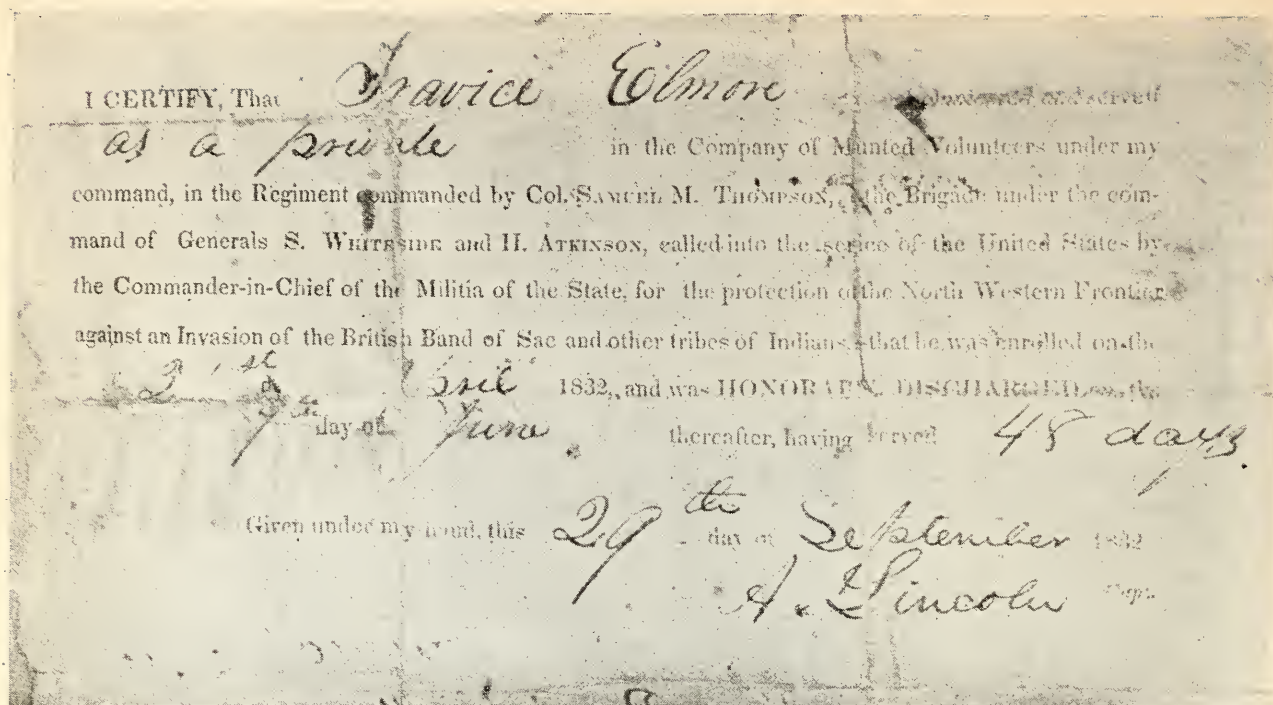 I CERTIFY, That Travice Elmore Volunteered and served
as a private in the Company of Munted Volunteers under my
command, in the Regiment commanded by Col. SAMUEL M. THOMPSON, the Brigade under the com-
mand of Generals S. WHITESIDE and H. ATKINSON, called into the serice of the United States by
the Commander-in-Chief of the Militia of the State, for the protection o the North Western Frontier
against an Invasion of the British Band of Sac and other tribes of Indians, that he was enrolled on the
1832, and was DISCHARGED on the
7th day of June thereafter, having served 48 days
Given under my hand, this 29th day of September 1832
A. Lincoln Capt.